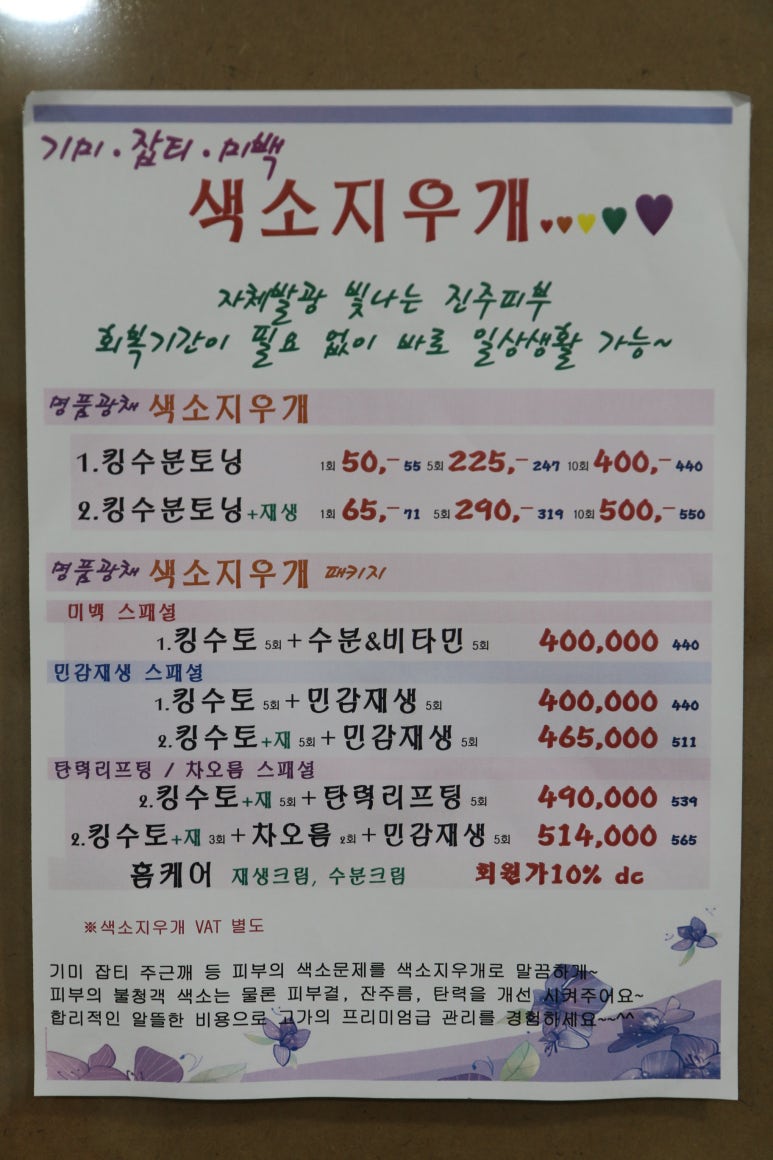 기미·잡티·미백
색소지우개
자체발광 빛나는 진주피부
회복기간이 필요 없이 바로 일상생활 가능~
명품광채 색소지우개
1.킹수분토닝 1회 50,- 55 5회 225,- 247 10회 400,- 440
2.킹수분토닝+재생 1회 65,- 71 5회 290,- 319 10회 500,- 550
명품광채 색소지우개 패키지
미백 스패셜
1.킹수토 5회 + 수분&비타민 5회 400,000 440
민감재생 스패셜
1.킹수토 5회 + 민감재생 5회 400,000 440
2.킹수토+재 5회 + 민감재생 5회 465,000 511
탄력리프팅 / 차오름 스패셜
2.킹수토+재 5회 + 탄력리프팅 5회 490,000 539
2.킹수토+재 3회 + 차오름 2회 + 민감재생 5회 514,000 565
홈케어 재생크림, 수분크림 회원가10% dc
※색소지우개 VAT 별도
기미 잡티 주근깨 등 피부의 색소문제를 색소지우개로 말끔하게~
피부의 불청객 색소는 물론 피부결, 잔주름, 탄력을 개선 시켜주어요~
합리적인 알뜰한 비용으로 고가의 프리미엄급 관리를 경험하세요~~^^